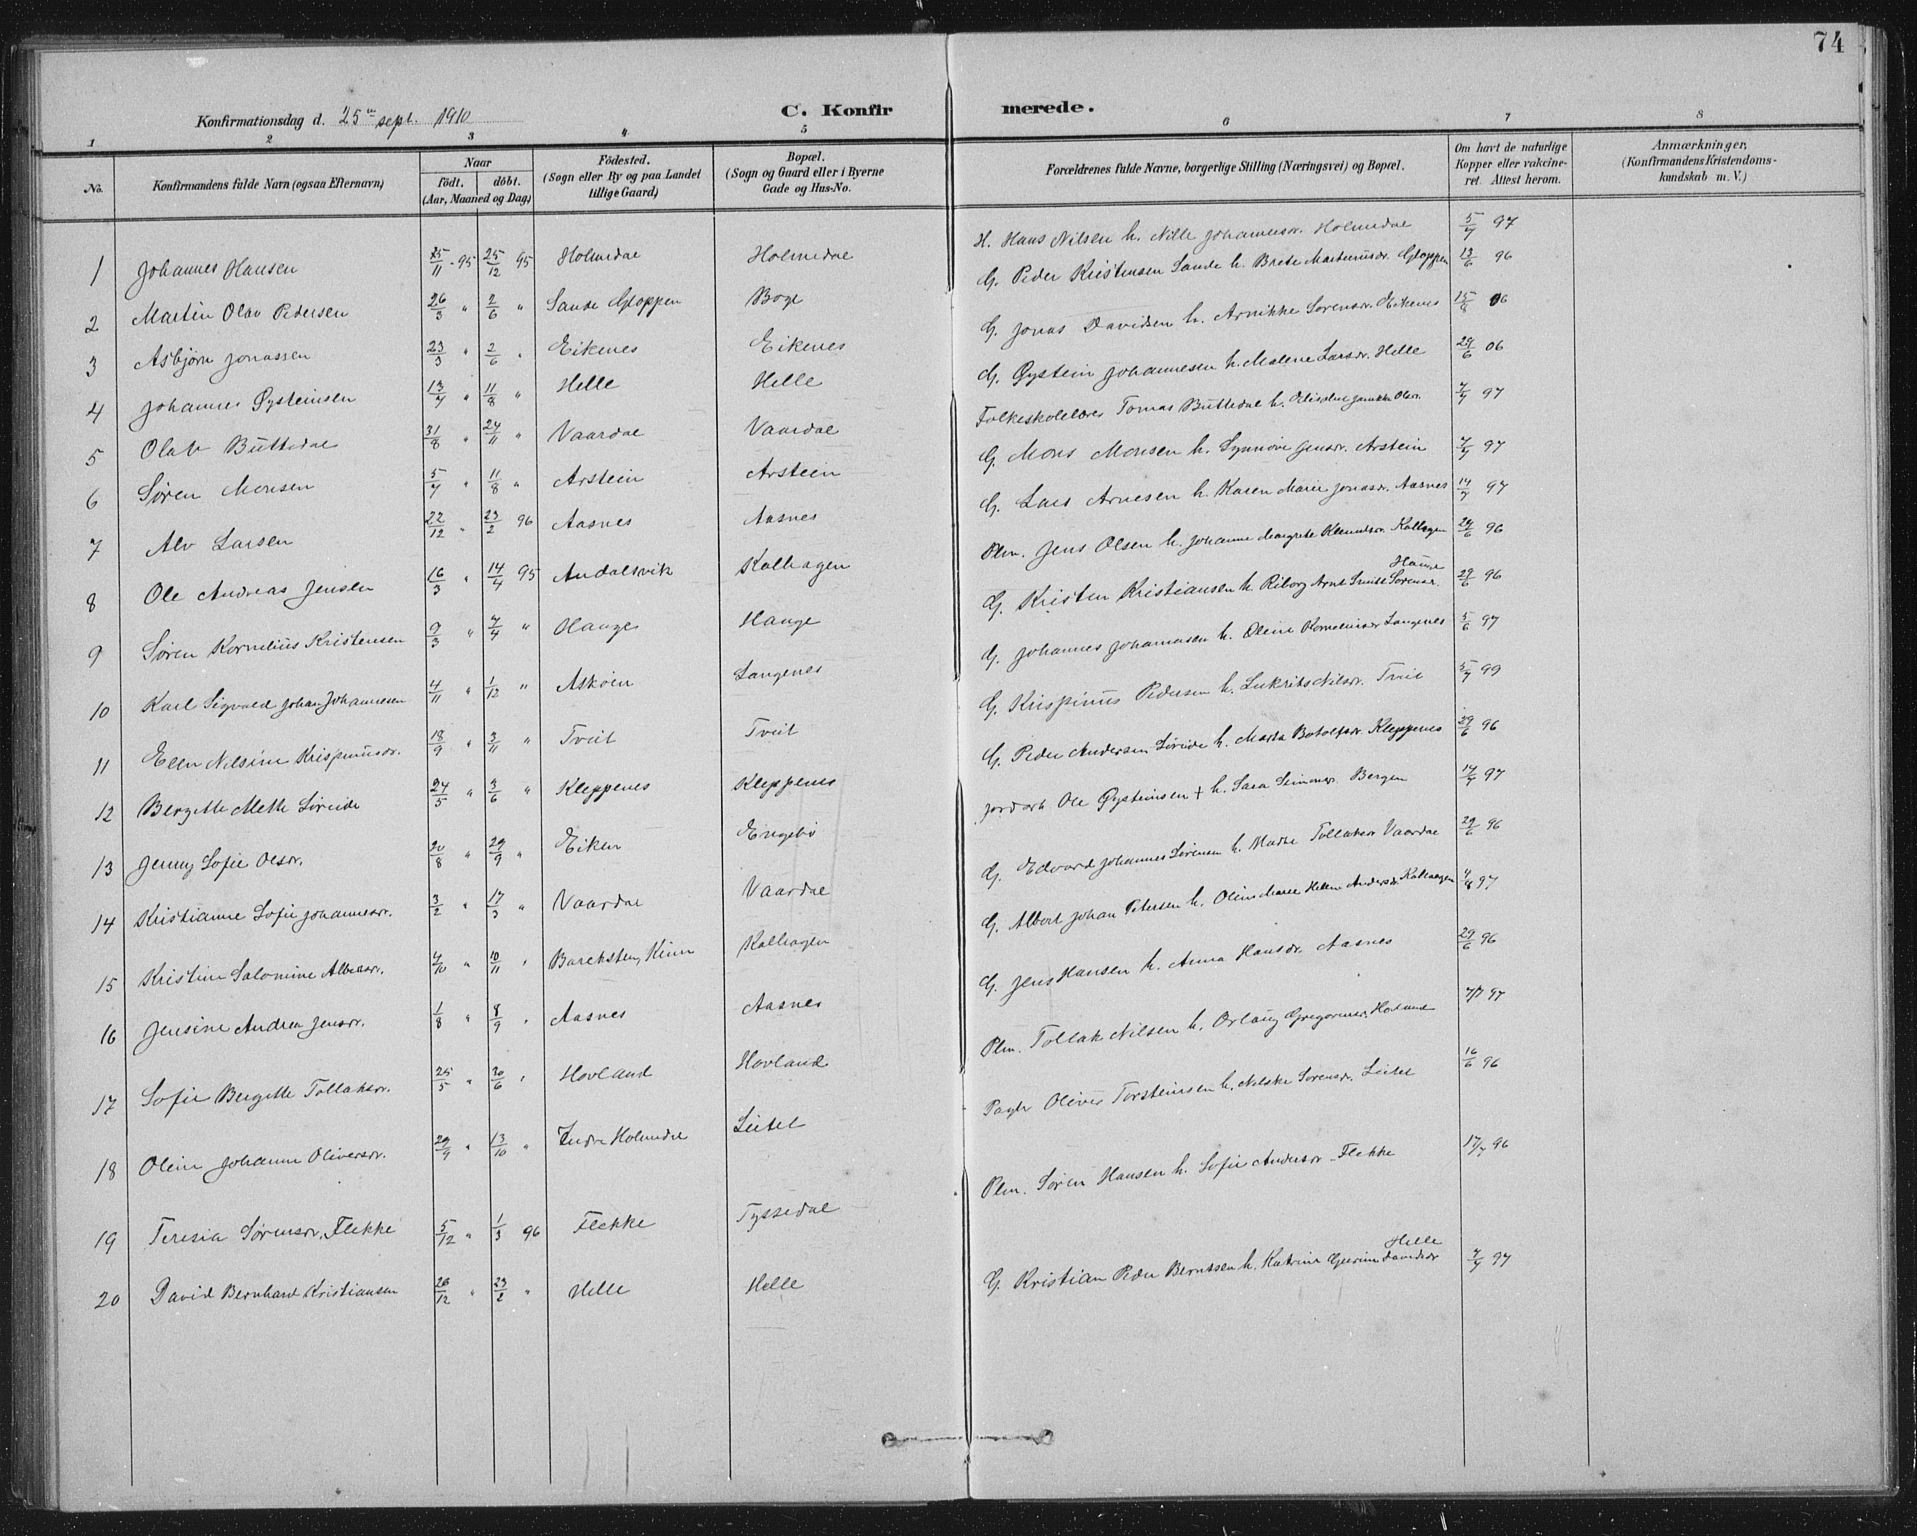 74
Konfirmationsdag d. 25de sept. 1910
C. Konfirmerede.
1 2 3 4 5 6 7 8
No.
Konfirmandens fulde Navn (ogsaa Efternavn)
Naar
Födt. döbt.
(Aar, Maaned og Dag)
Födested.
(Sogn eller By og paa Landet
tillige Gaard)
Bopæl.
(Sogn og Gaard eller i Byerne
Gade og Hus-No.
Forældrenes fulde Navne, borgerlige Stilling (Næringsvei) og Bopæl.
Om havt de naturlige
Kopper eller vakcine-
ret. Attest herom.
Anmærkninger,
(Konfirmandens Kristendoms-
kundskab m. V.)
1 Johannes Hansen 25/11 - 95 25/12 95 Holmedal Holmedal H. Hans Nilsen h. Nille Johannesdr. Holmedal 5/7 97
2 Martin Olav Pedersen 26/3 " 2/6 " Sande Gloppen Boge G. Peder Kristensen Sande h. Brete Martinusdr. Gloppen 13/6 96
3 Asbjørn Jonassen 23/3 " 2/6 " Eikenes Eikenes G. Jonas Davidsen h. Arnikke Sørensdr. Eikenes 15/8 06
4 Johannes Øysteinsen 13/7 " 11/8 " Helle Helle G. Øystein Johannesen h. Malene Larsdr. Helle 29/6 06
5 Olav Buttedal 31/8 " 24/11 " Vaardal Vaardal Folkeskolelærer Tomas Buttedal h. 7/7 97
6 Søren Monsen 5/7 " 11/8 " Arstein Arstein G. Mons Monsen h. Synnøve Jensdr. Arstein 7/7 97
7 Alv Larsen 22/12 " 23/2 96 Aasnes Aasnes G. Lars Arnesen h. Karen Marie Jonasdr. Aasnes 14/7 97
8 Ole Andreas Jensen 16/3 " 14/4 95 Andalsvik Kalhagen Plm. Jens Olsen h. Johanne Margrete Klemetsdr. Kalhagen 29/6 96
9 Søren Kornelius Kristensen 9/3 " 7/4 " Hauge Hauge G. Kristen Kristiansen h. Riborg Arnt Smitt Sørensdr. Hauge 29/6 96
10 Karl Sigvald Johan Johannesen 4/11 " 1/12 " Askøen Langenes G. Johannes Johannesen h. Oline Korneliusdr Langenes 5/6 97
11 Ellen Nilsine Krispinusdr. 18/9 " 3/11 " Tveit Tveit G. Krispinus Pedersen h. Lukrits Nilsdr. Tveit 5/7 99
12 Bergitte Mette Søreide 24/5 " 3/6 " Kleppenes Kleppenes G. Peder Andersen Søreide h. Marta Botolfsdr. Kleppenes 29/6 96
13 Jenny Sofie Olsdr. 20/8 " 29/9 " Eiken Engebø Jordarb Ole Øysteinsen + h. Sara Simonsdr. Bergen 14/7 97
14 Kristianne Sofie Johannesdr. 3/2 " 17/3 " Vaardal Vaardal G. Edvard Johannes Sørensen h. Marta Tollaksdr Vaardal 29/6 96
15 Kristine Salomine Albertsdr. 4/10 " 10/11 " Barekstein, Kinn Kalhagen G. Albert Johan Petersen h. Oline Marie Helene Andersdr. Kalhagen 4/8 97
16 Jensine Andrea Jensdr. 1/8 " 8/9 " Aasnes Aasnes G. Jens Hansen h. Anna Hansdr. Aasnes 29/6 96
17 Sofie Bergitte Tollaksdr. 25/5 " 30/6 " Hovland Hovland Plm. Tollak Nilsen h. Orlaug Gregoriusdr. Hovland 7/7 97
18 Oline Johanne Oliversdr. 29/9 " 13/10 " Indre Holmedal Leitet Oliver Torsteinsen h. Nilske Sørensdr. Leitet 16/6 96
19 Teresia Sørensdr. Flekke 5/12 " 1/3 96 Flekke Tyssedal Plm. Søren Hansen h. Sofie Andersdr Flekke 17/7 96
20 David Bernhard Kristiansen 26/12 " 23/2 " Helle Helle G. Kristian Peder Berntsen h. Katrine Gurine Davidsdr Helle 7/7 97